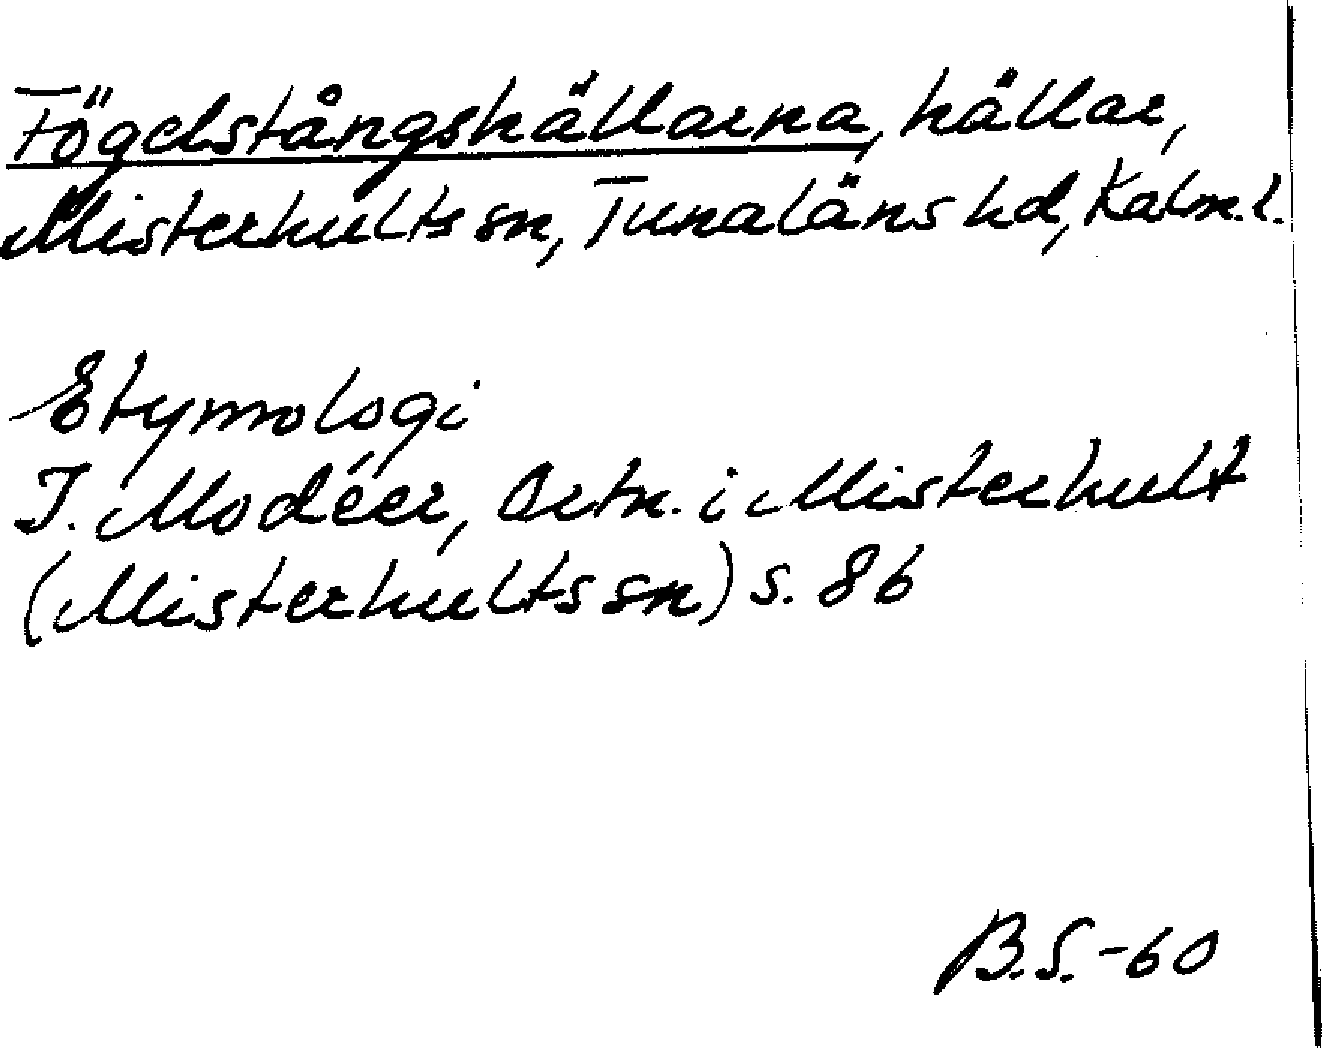 Fögelstångshällarna, hällar,
Misterhults sn, Tunaläns hd, Kalm. l.
Etymologi
I. Modéer, Ortn. i Misterhult
(Misterhults sn) s. 86
B.S.-60